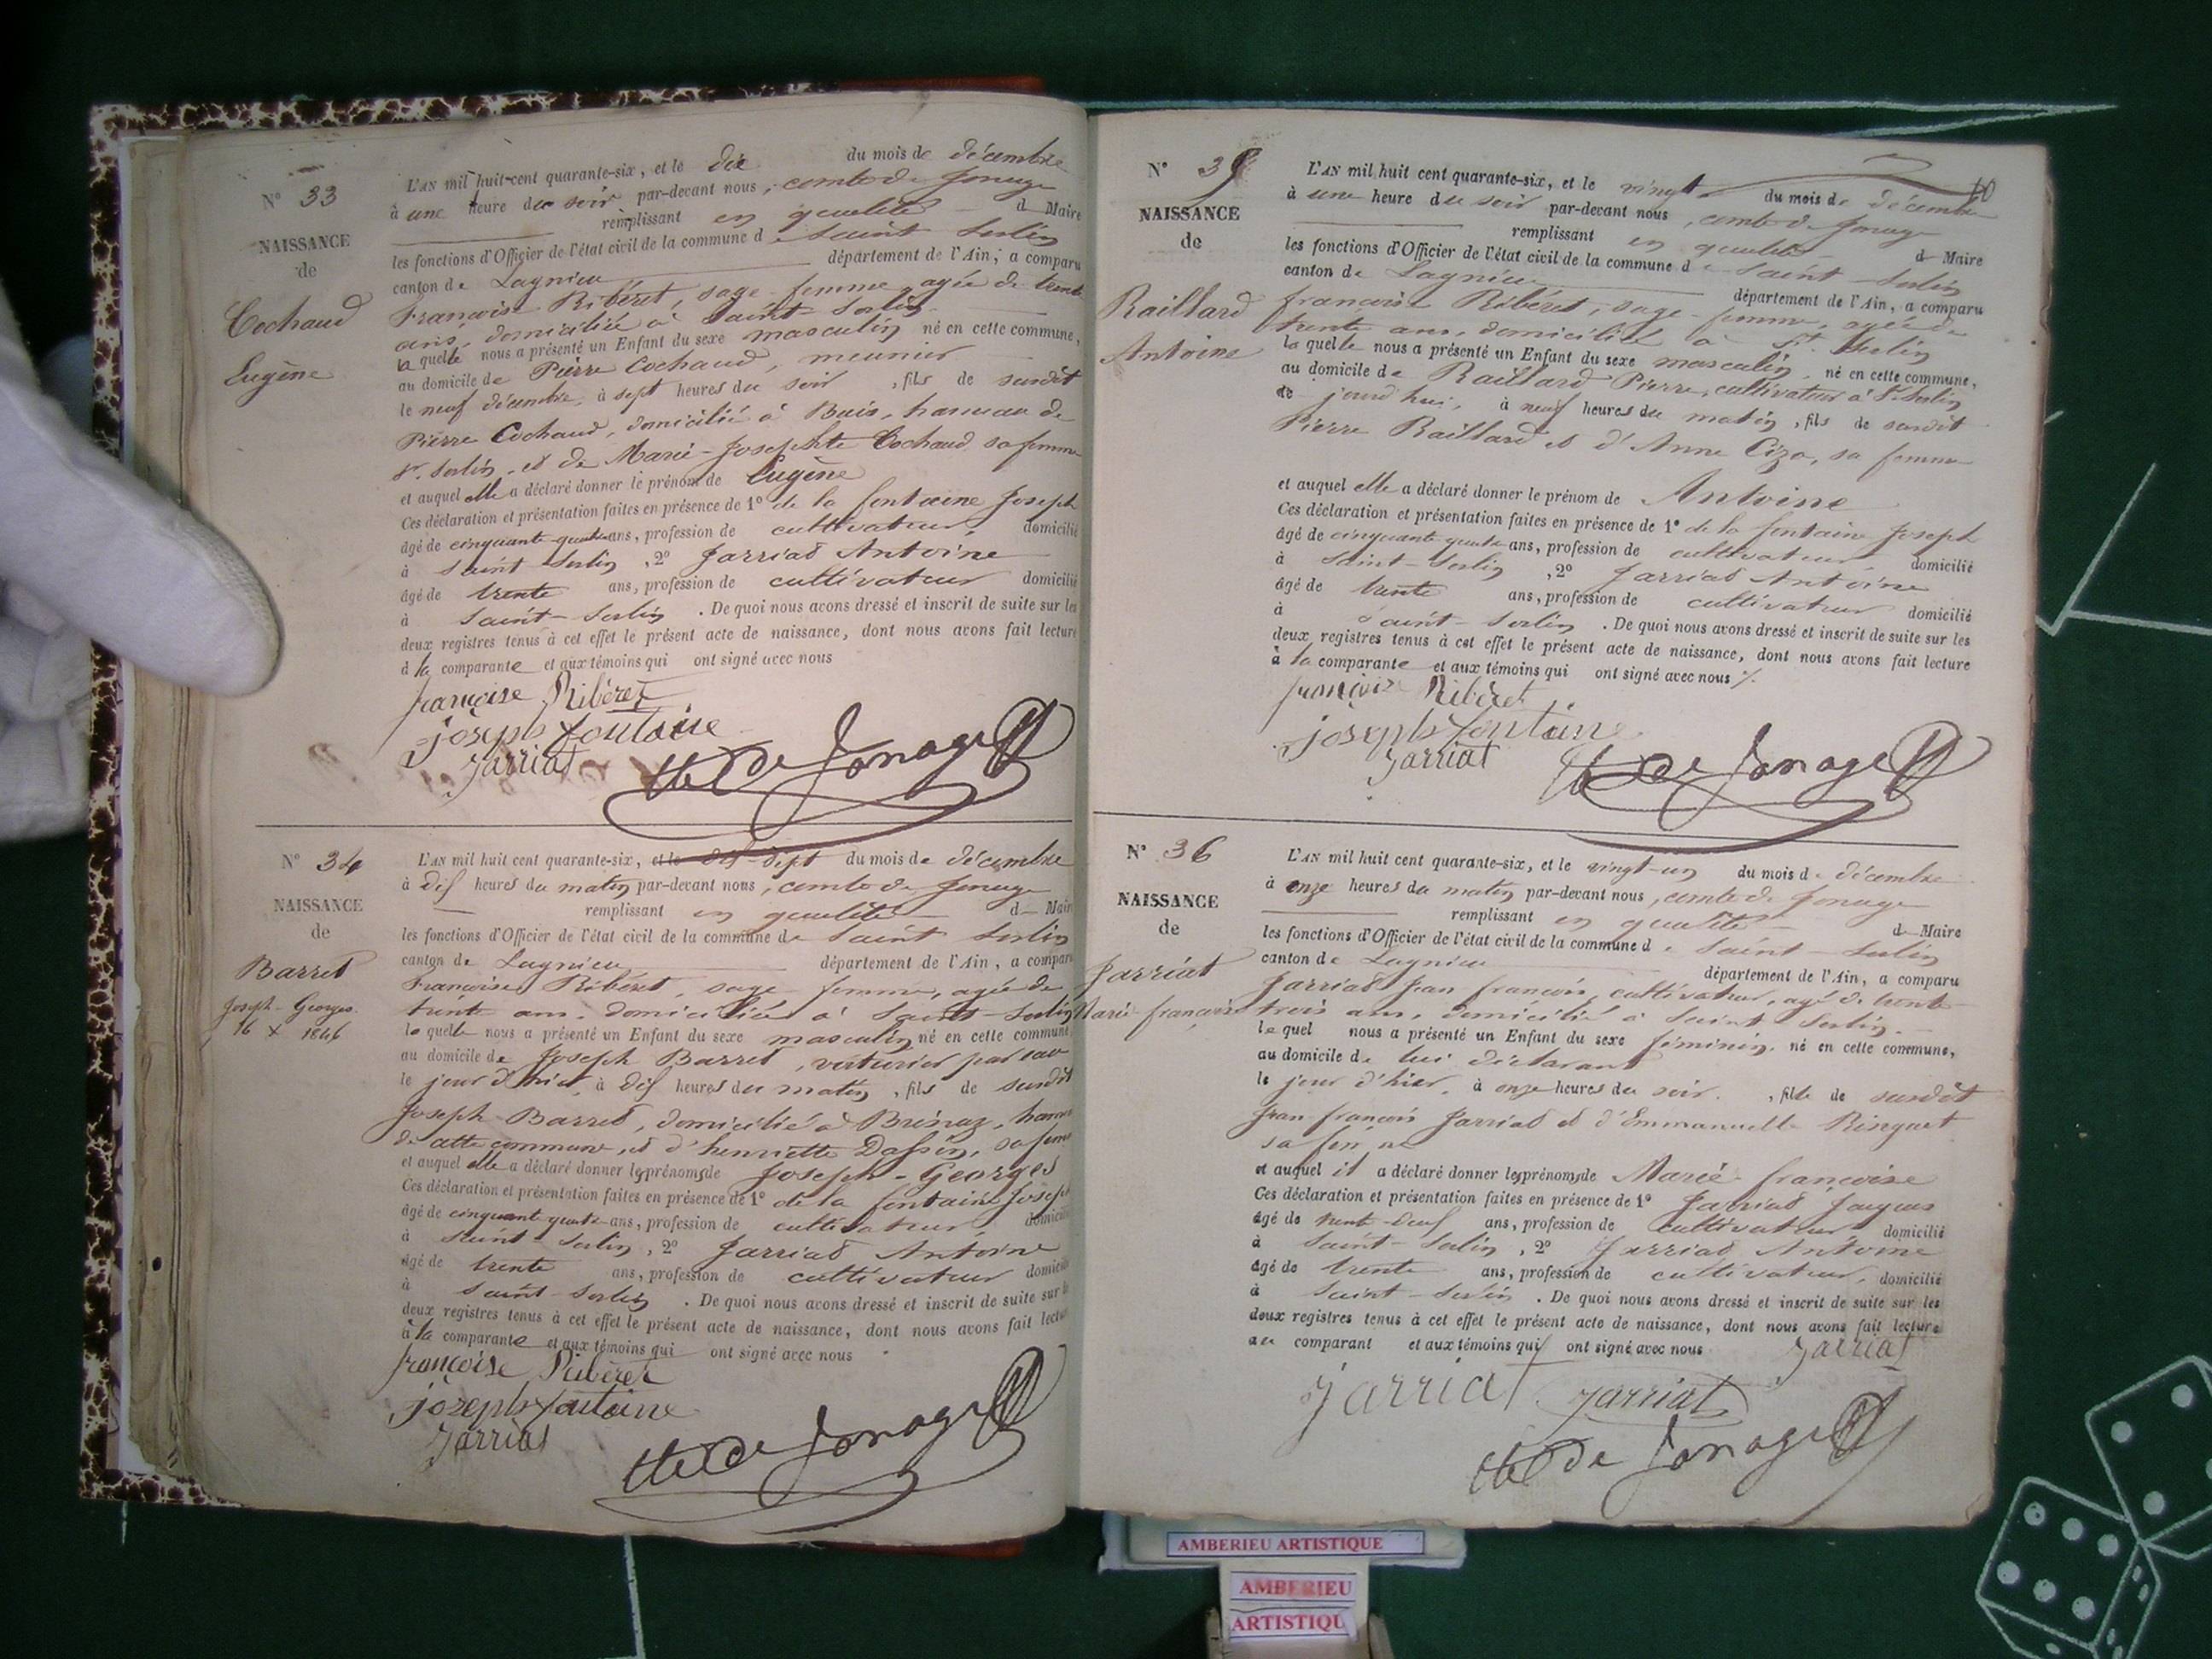 N° 33
NAISSANCE
de
Cochaud
Eugène
L'AN mil huit cent quarante-six, et le dix du mois de décembre
à une heure du soir par-devant nous, comte de Jonage
remplissant en qualité d Maire
les fonctions d'Officier de l'état civil de la commune de Saint Sorlin
canton de Lagnieu département de l'Ain, a comparu
Françoise Ribéret, sage-femme, agée de trente
ans, domiciliée à Saint Sorlin
laquelle nous a présenté un Enfant du sexe masculin né en cette commune,
au domicile de Pierre Cochaud, meunier
le neuf décembre, à sept heures du soir, fils de susdit
Pierre Cochaud, domicilié à Buis, hameau de
St. Sorlin, et de Marie-Josephte Cochaud sa femme
et auquel elle a déclaré donner le prénom de Eugène
Ces déclaration et présentation faites en présence de 1° de la fontaine Joseph
âgé de cinquante quatre ans, profession de cultivateur, domicilié
à Saint Sorlin, 2° Jarriat Antoine
âgé de trente ans, profession de cultivateur domicilié
à Saint-Sorlin. De quoi nous avons dressé et inscrit de suite sur les
deux registres tenus à cet effet le présent acte de naissance, dont nous avons fait lecture
à la comparante et aux témoins qui ont signé avec nous
françoise Ribéret
joseph fontaine
Jarriat
Cte de Jonage
N° 34
NAISSANCE
de
Barret
Joseph-Georges
16 X 1846
L'AN mil huit cent quarante-six, et le dix-sept du mois de décembre
à dix heures du matin par-devant nous, comte de Jonage
remplissant en qualité d Maire
les fonctions d'Officier de l'état civil de la commune de Saint Sorlin
canton de Lagnieu département de l'Ain, a comparu
Françoise Ribéret, sage-femme, agée de
trente ans, domiciliée à Saint-Sorlin
laquelle nous a présenté un Enfant du sexe masculin né en cette commune
au domicile de Joseph Barret, voiturier par eau
le jour d'hier, à dix heures du matin, fils de susdit
Joseph Barret, domicilié à Brénaz, hame
de cette commune, et d'henriette Dassin, sa femme
et auquel elle a déclaré donner les prénoms de Joseph-Georges
Ces déclaration et présentation faites en présence de 1° de la fontaine Joseph
âgé de cinquante quatre ans, profession de cultivateur, domicilié
à Saint-Sorlin, 2° Jarriat Antoine
âgé de trente ans, profession de cultivateur domicilié
à Saint-Sorlin. De quoi nous avons dressé et inscrit de suite sur les
deux registres tenus à cet effet le présent acte de naissance, dont nous avons fait lecture
à la comparante et aux témoins qui ont signé avec nous
françoise Ribéret
joseph fontaine
Jarriat
Cte de Jonage
N° 35
NAISSANCE
de
Raillard
Antoine
L'AN mil huit cent quarante-six, et le vingt du mois de décembre
à une heure du soir par-devant nous, comte de Jonage
remplissant en qualité d Maire
les fonctions d'Officier de l'état civil de la commune de Saint-Sorlin
canton de Lagnieu département de l'Ain, a comparu
françoise Ribéret, sage-femme, agée de
trente ans, domiciliée à St. Sorlin
laquelle nous a présenté un Enfant du sexe masculin, né en cette commune,
au domicile de Raillard Pierre, cultivateur à St. Sorlin
jourd'hui, à neuf heures du matin, fils de susdit
Pierre Raillard et d'Anne Cizo, sa femme
et auquel elle a déclaré donner le prénom de Antoine
Ces déclaration et présentation faites en présence de 1° de la fontaine Joseph
âgé de cinquante quatre ans, profession de cultivateur domicilié
à Saint-Sorlin, 2° Jarriat Antoine
âgé de trente ans, profession de cultivateur domicilié
à Saint-Sorlin. De quoi nous avons dressé et inscrit de suite sur les
deux registres tenus à cet effet le présent acte de naissance, dont nous avons fait lecture
à la comparante et aux témoins qui ont signé avec nous
françoise Ribéret
joseph fontaine
Jarriat
Cte de Jonage
N° 36
NAISSANCE
de
Jarriat
Marie françoise
L'AN mil huit cent quarante-six, et le vingt-un du mois de décembre
à onze heures du matin par-devant nous, comte de Jonage
remplissant en qualité d Maire
les fonctions d'Officier de l'état civil de la commune de Saint-Sorlin
canton de Lagnieu département de l'Ain, a comparu
Jarriat Jean françois, cultivateur, agé de trente
trois ans, domicilié à Saint Sorlin.
lequel nous a présenté un Enfant du sexe féminin, né en cette commune,
au domicile de lui déclarant
le jour d'hier, à onze heures du soir, fille de susdit
Jean françois Jarriat et d'Emmanuelle Ringuet
sa femme
et auquel il a déclaré donner les prénoms de Marie françoise
Ces déclaration et présentation faites en présence de 1° Jarriat Jacques
âgé de ans, profession de cultivateur, domicilié
à Saint-Sorlin, 2° Jarriat Antoine
âgé de trente ans, profession de cultivateur, domicilié
à Saint-Sorlin. De quoi nous avons dressé et inscrit de suite sur les
deux registres tenus à cet effet le présent acte de naissance, dont nous avons fait lecture
au comparant et aux témoins qui ont signé avec nous
Jarriat
Jarriat Jarriat
Cte de Jonage
AMBERIEU ARTISTIQUE
AMBERIEU
ARTISTIQU